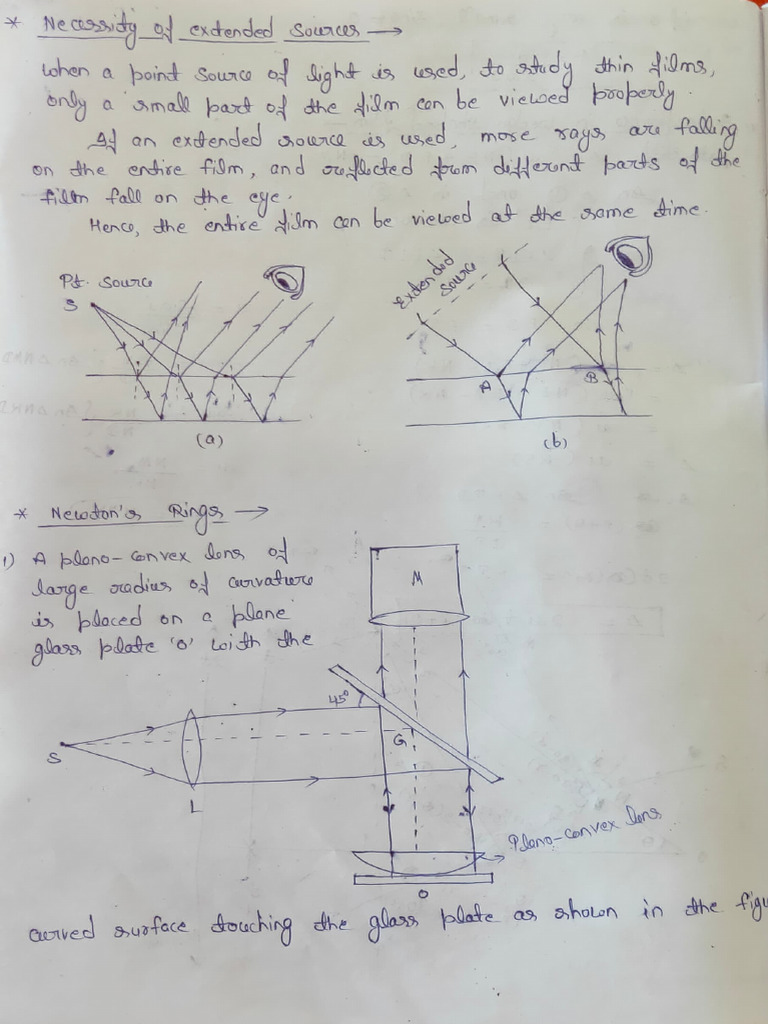 * Necessity of extended sources →
When a point source of light is used, to study thin films,
only a small part of the film can be viewed properly.
If an extended source is used, more rays are falling
on the entire film, and reflected from different parts of the
film fall on the eye.
Hence, the entire film can be viewed at the same time.
Pt. source
S
Extended
source
A
B
(a)
(b)
* Newton's Rings →
1) A plano-convex lens of
large radius of curvature
is placed on a plane
glass plate 'O' with the
M
45°
G
S
L
Plano-convex lens
O
curved surface touching the glass plate as shown in the figu